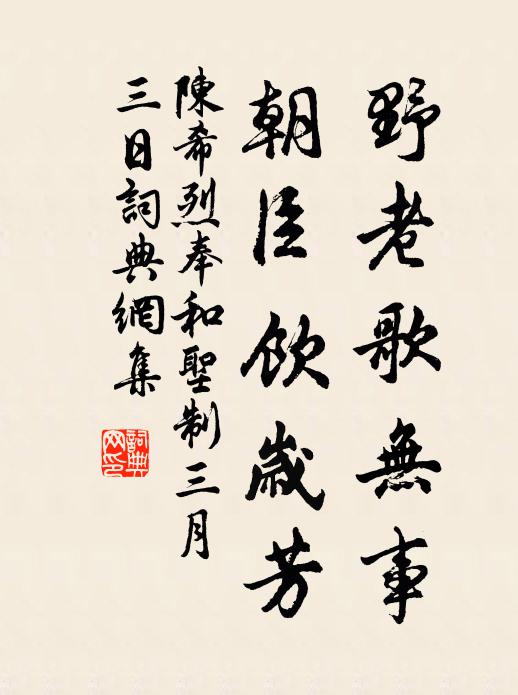 野老歌無事
朝臣飲歲芳
陳希烈奉和聖制三月
三日詞典網集
詞典
网印